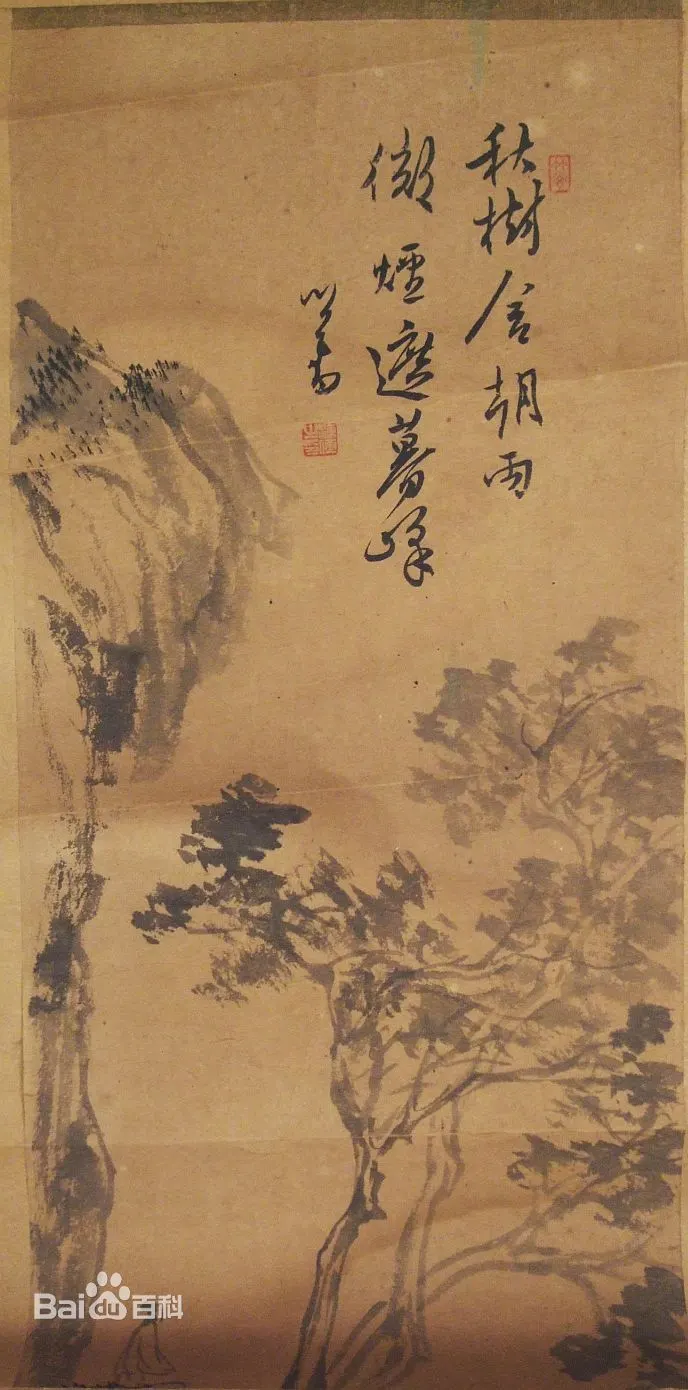 秋樹含朝雨
微煙遮暮峰
心畬
Baidu百科